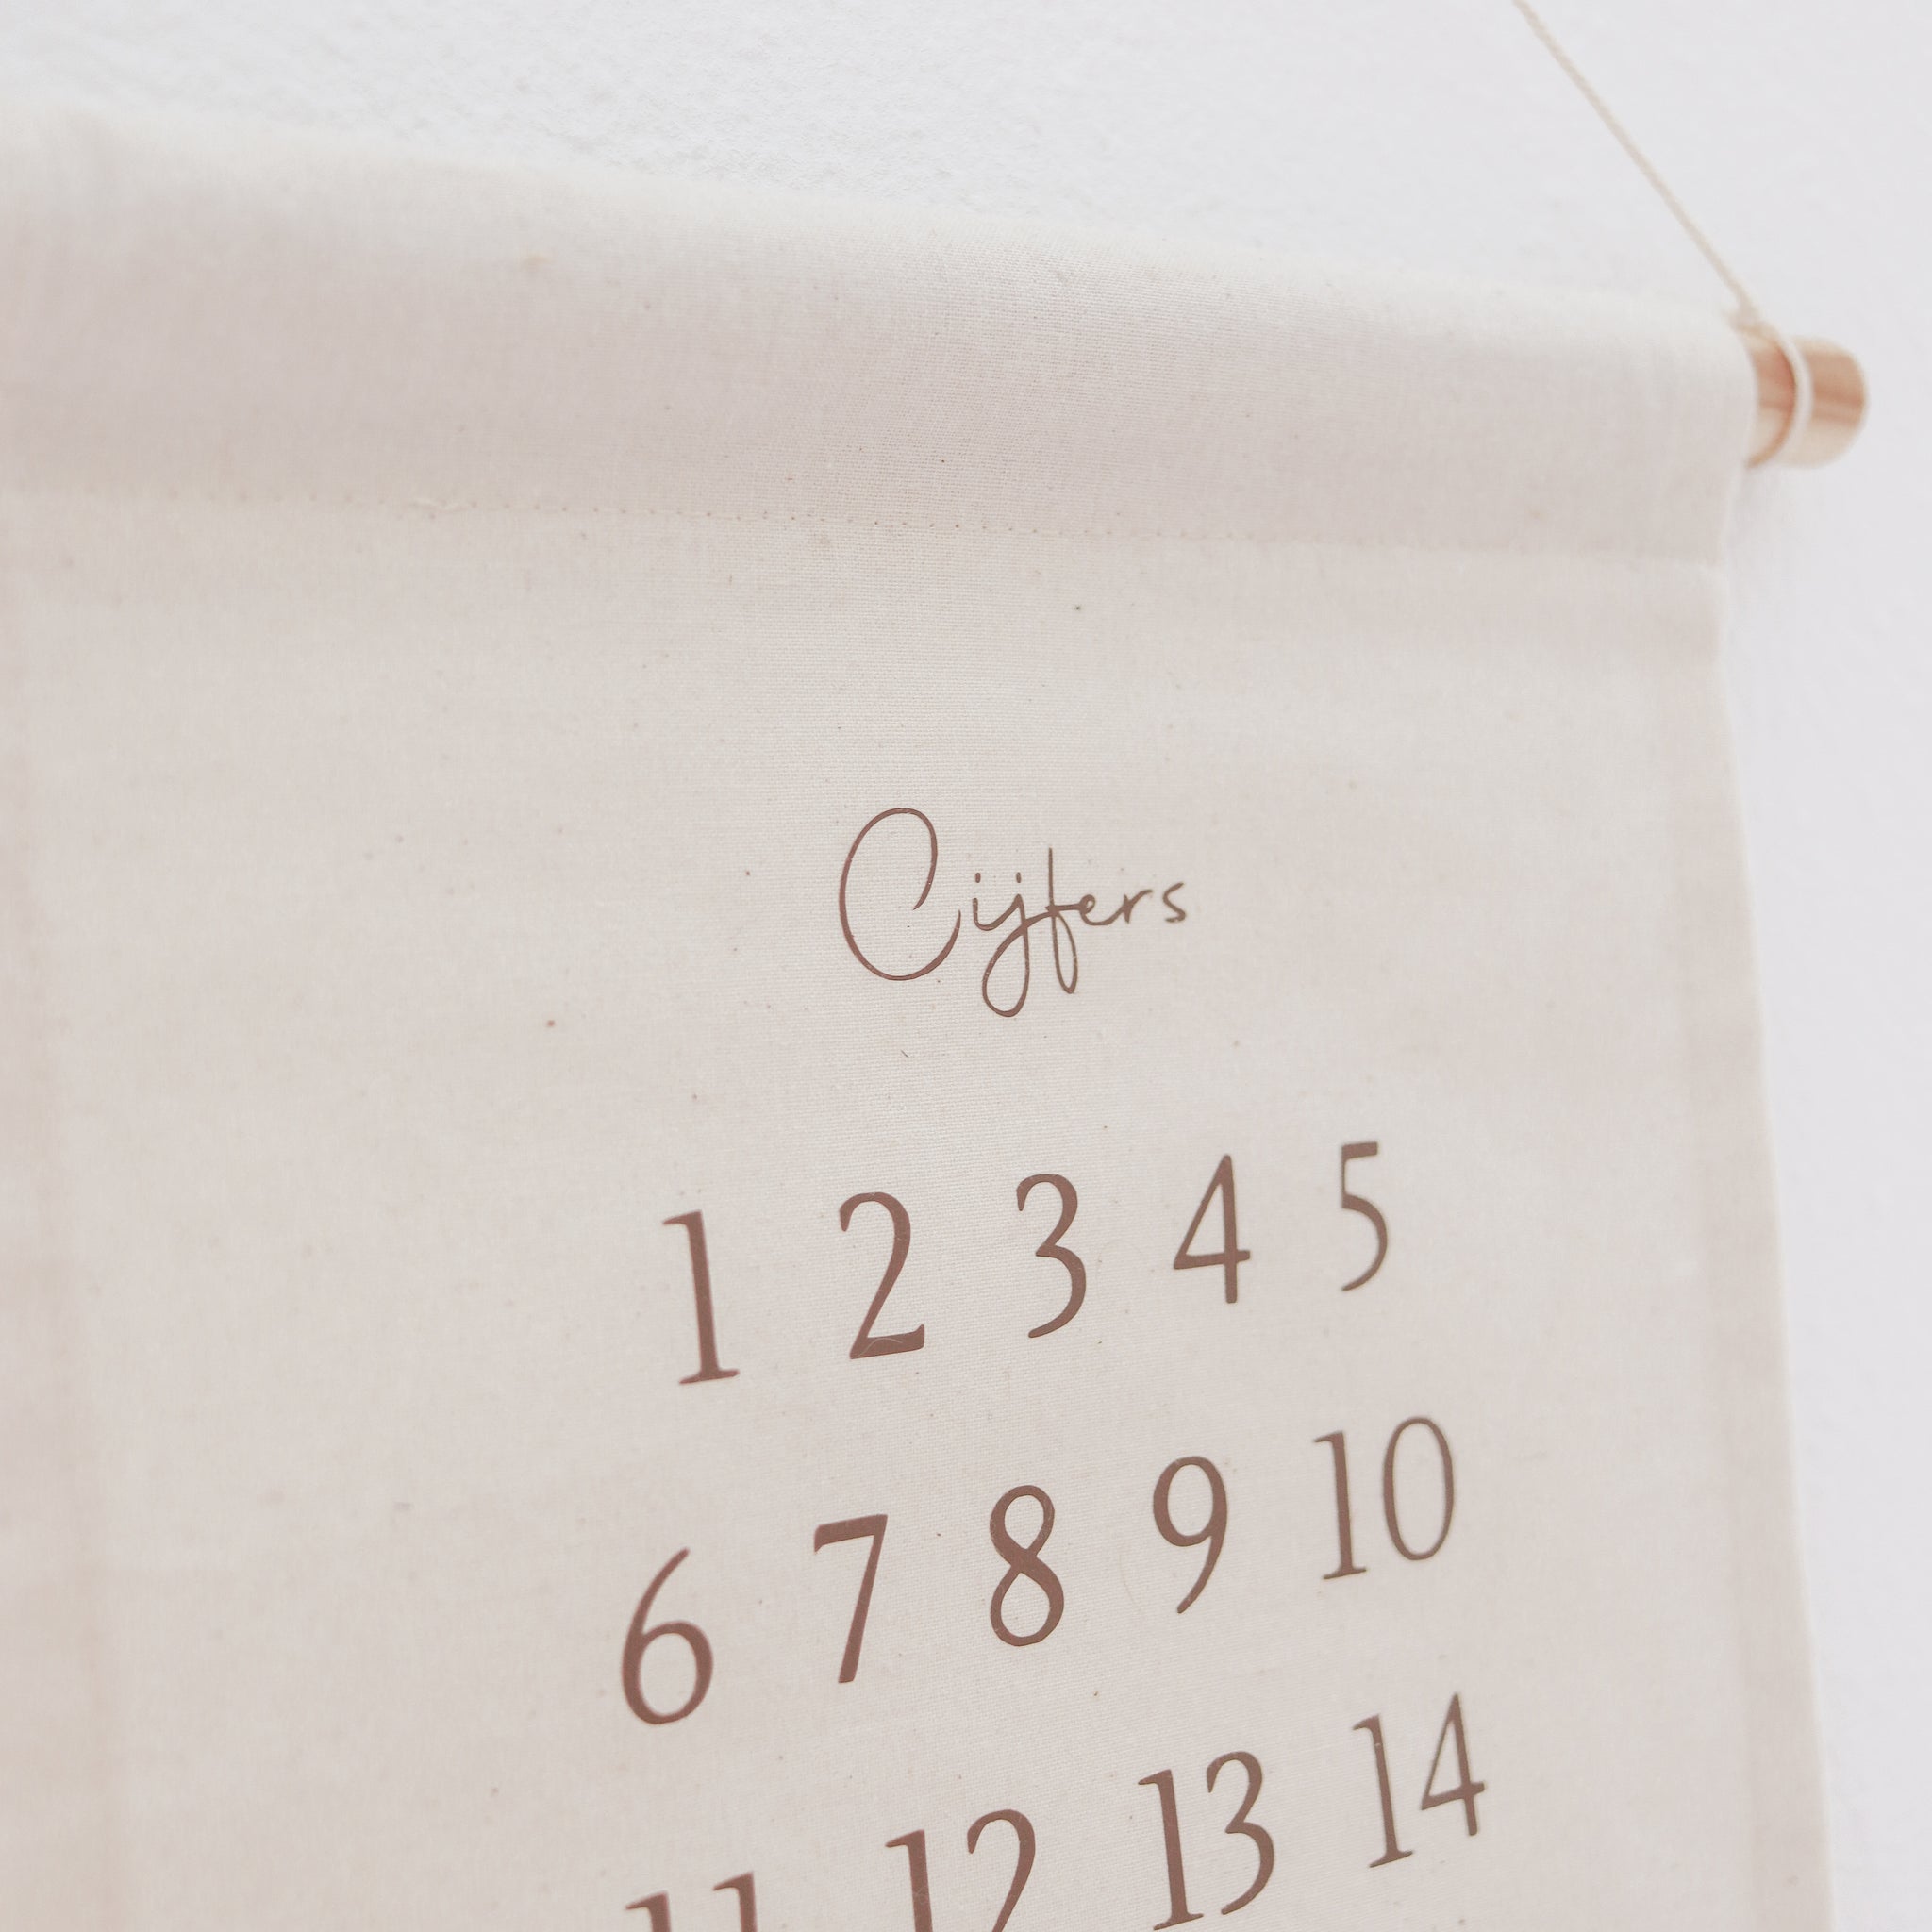 Cijfers
1 2 3 4 5
6 7 8 9 10
11 12 13 14